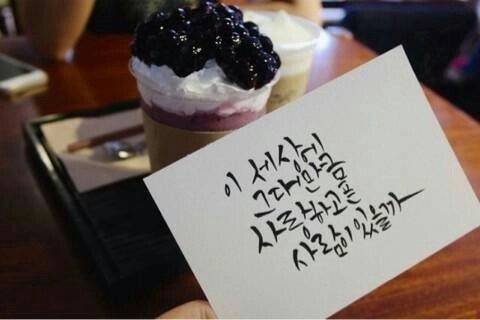 이 세상에
그대만큼
사랑하고픈
사람이 있을까